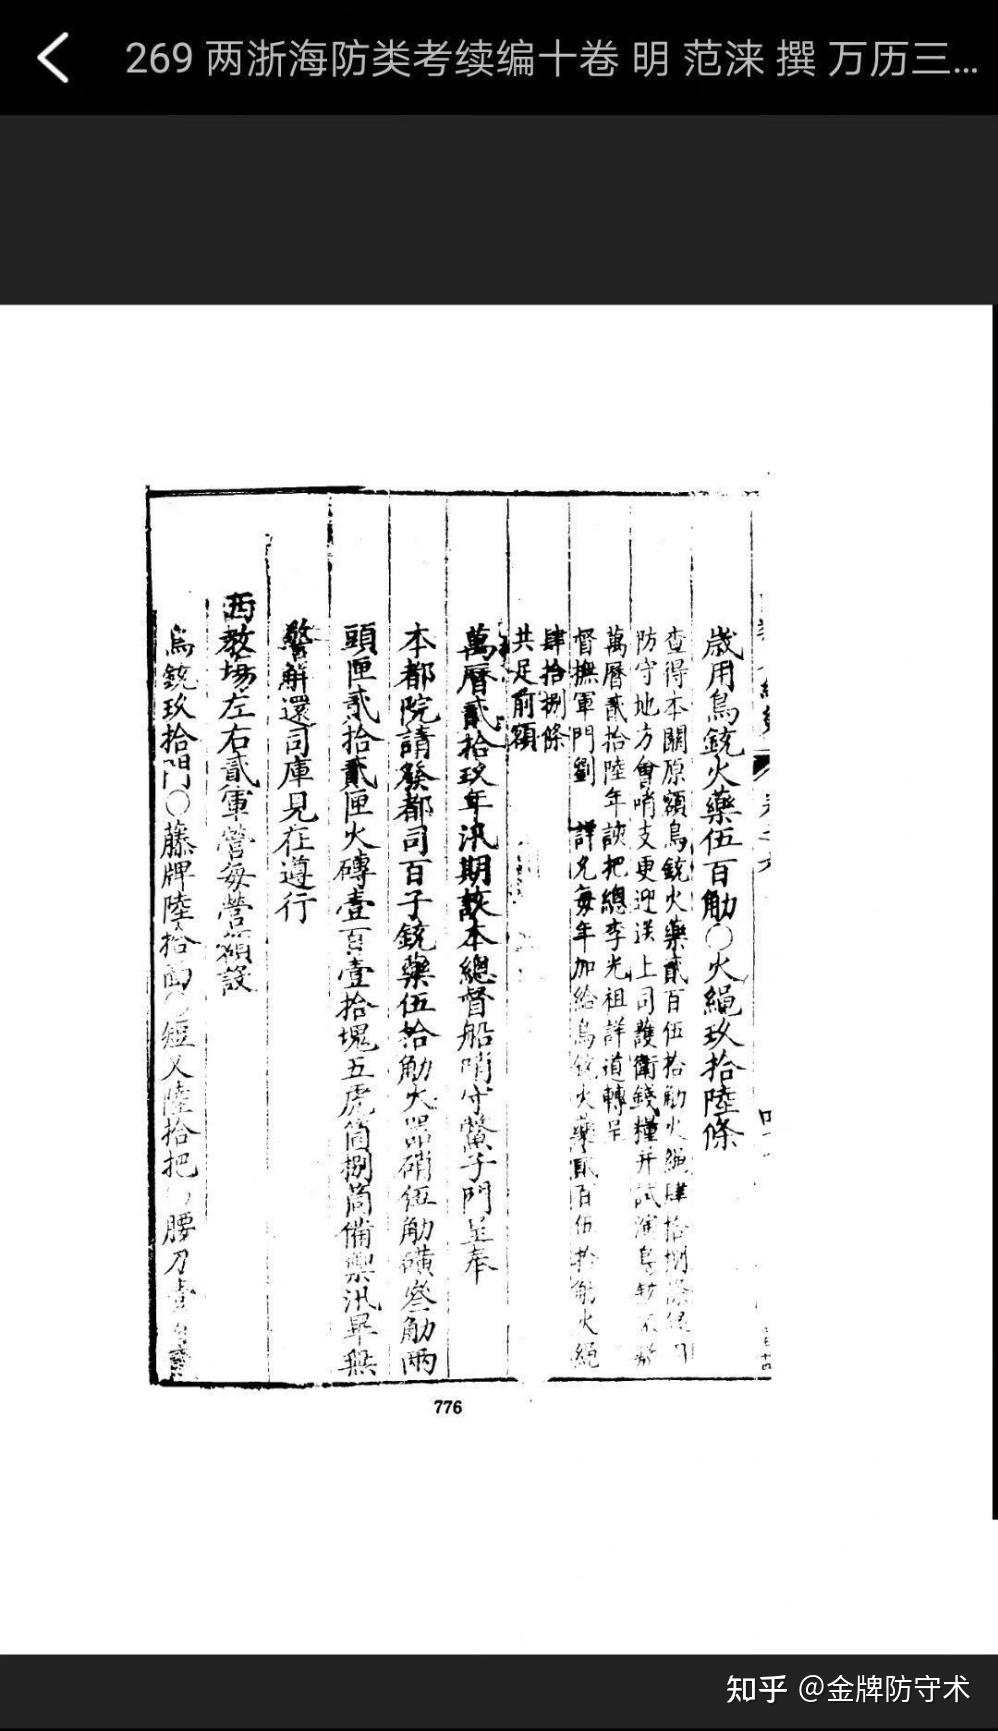 269 两浙海防类考续编十卷 明 范涞 撰 万历三...
歲用鳥銃火藥伍百觔○火繩玖拾陸條
查得本關原額鳥銃火藥貳百伍拾觔火繩肆拾捌條
防守地方會哨支更迎送上司護衛錢糧并試演鳥銃不敷
萬曆貳拾陸年該把總李光祖詳道轉呈
督撫軍門劉 詳允每年加給鳥銃火藥貳百伍拾觔火繩
肆拾捌條
共足前額
萬曆貳拾玖年汛期該本總督船哨守鱉子門呈奉
本都院請發都司百子銃藥伍拾觔火器硝伍觔磺叁觔兩
頭匣貳拾貳匣火磚壹百壹拾塊五虎筒捌筒備禦汛畢無
警解還司庫見在遵行
西教場左右貳軍營每營額設
鳥銃玖拾門○藤牌陸拾面○短义陸拾把○腰刀壹百
776
知乎 @金牌防守术